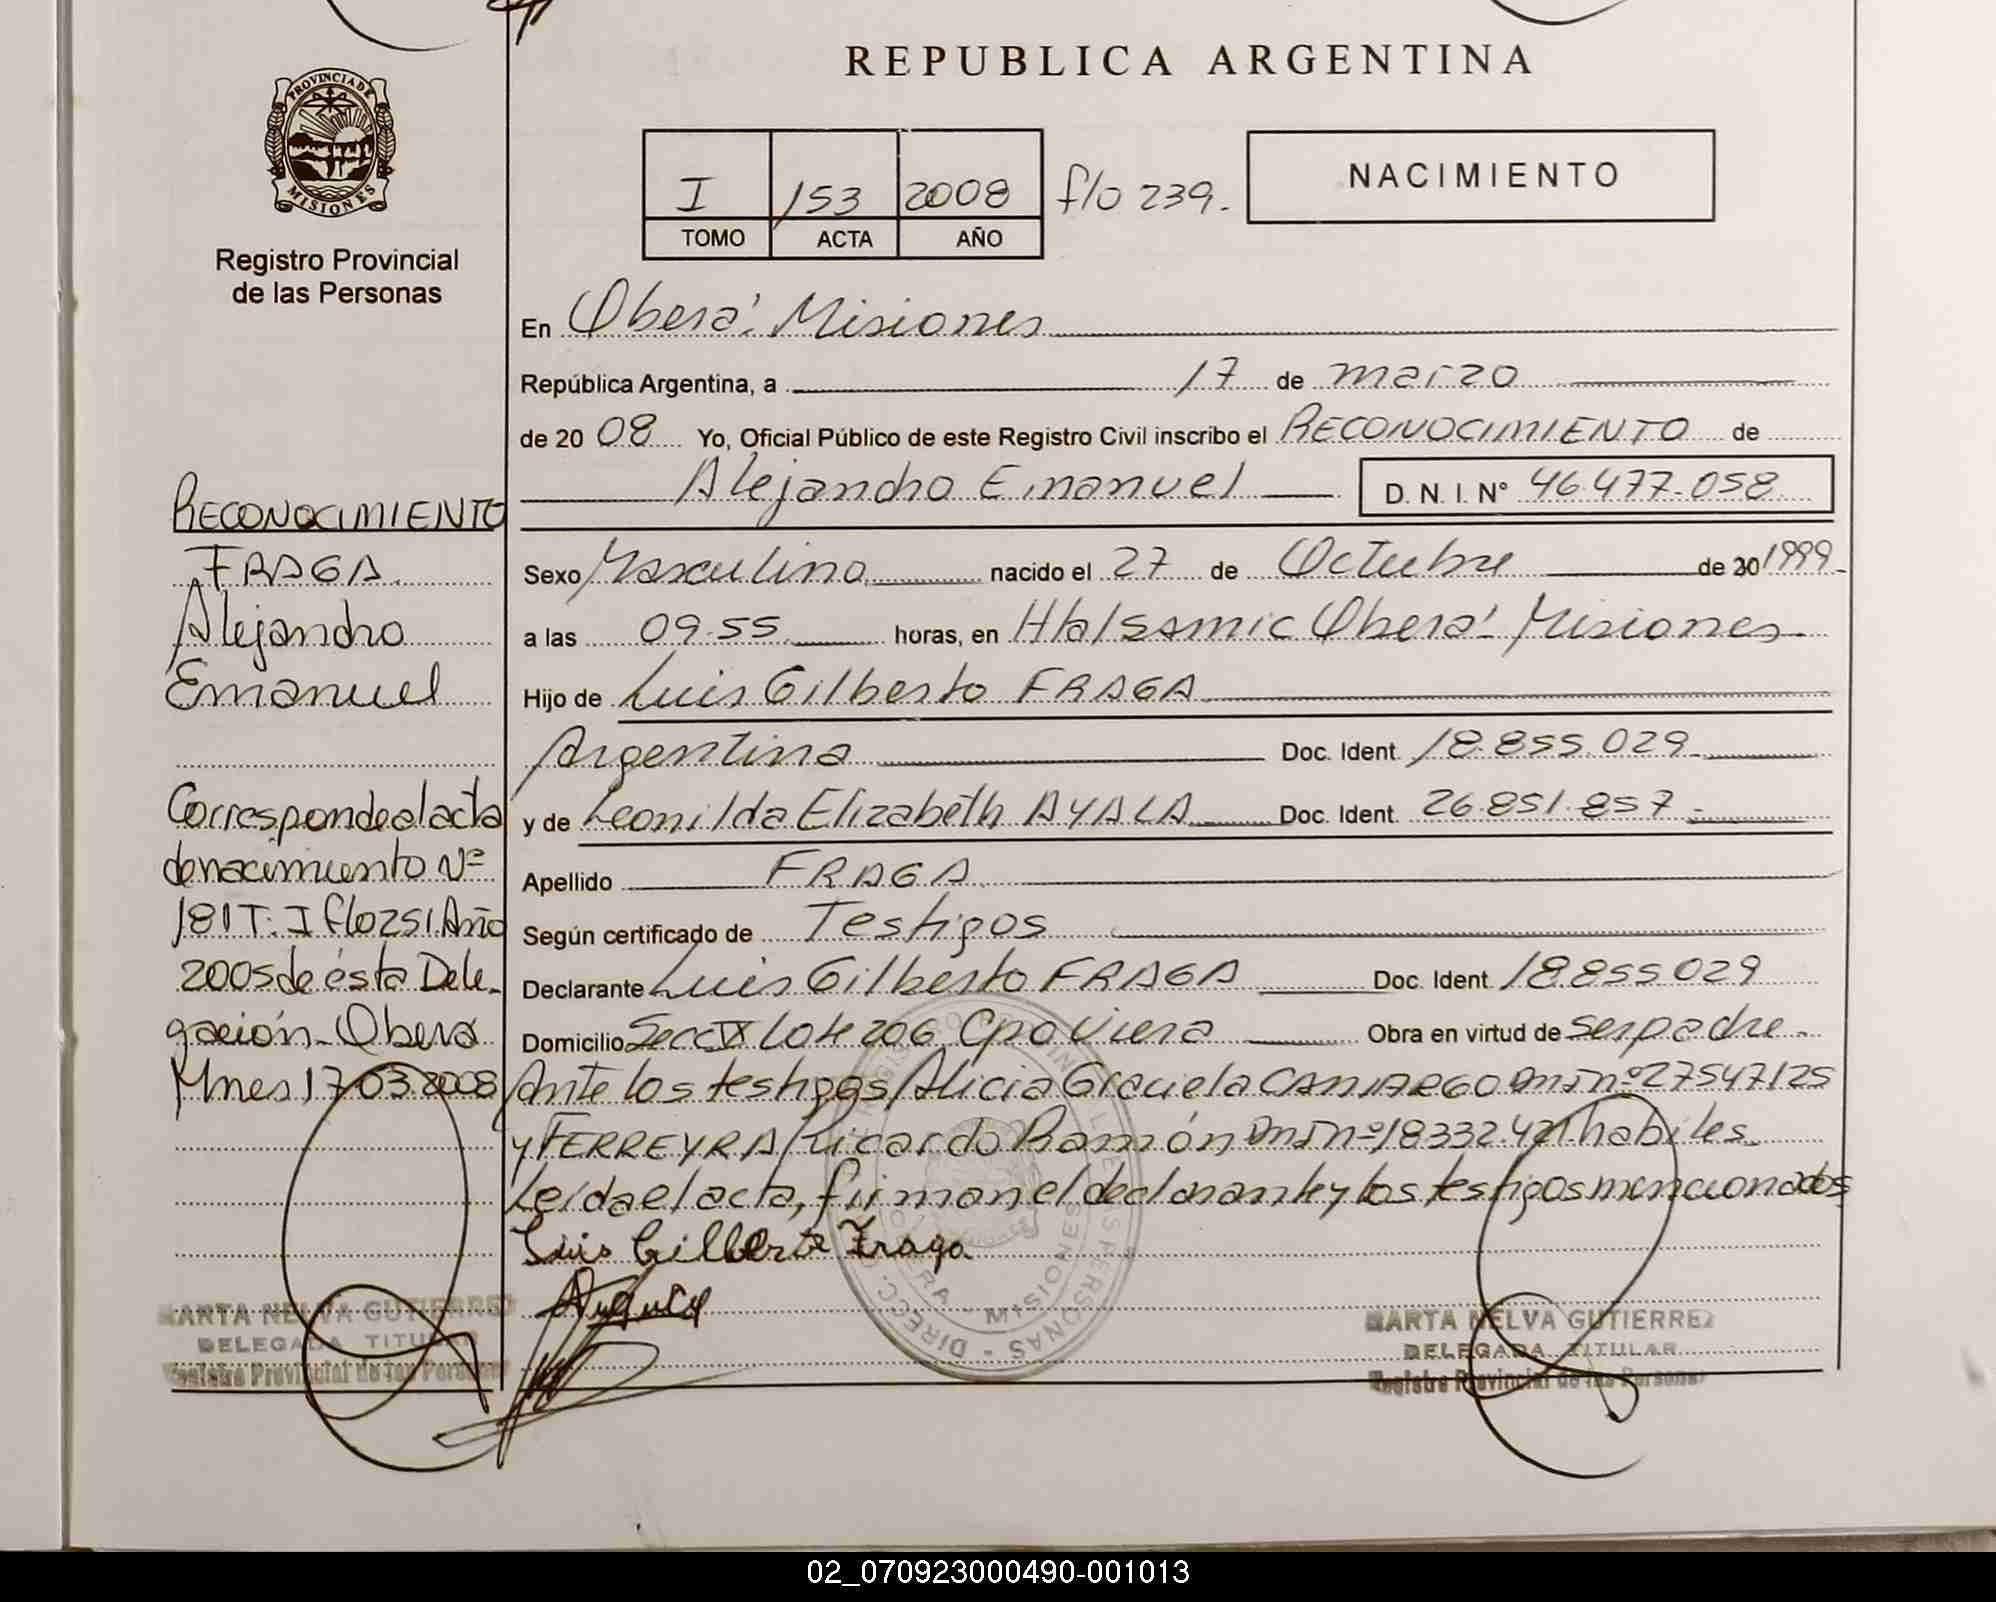 REPUBLICA ARGENTINA
PROVINCIA DE
MISIONES
Registro Provincial
de las Personas
I 153 2008 f/o 239.
TOMO ACTA AÑO
NACIMIENTO
En Oberá. Misiones
República Argentina, a 17 de marzo
de 20 08 Yo, Oficial Público de este Registro Civil inscribo el RECONOCIMIENTO de
Alejandro Emanuel D. N. I. N° 46.477.058
Sexo Masculino nacido el 27 de Octubre de 20 1999
a las 09.55 horas, en Oberá. Misiones
Hijo de Luis Gilberto FRAGA
Argentina Doc. Ident. 18.855.029
y de Leonilda Elizabeth AYALA Doc. Ident. 26.851.857
Apellido FRAGA
Según certificado de Testigos
Declarante Luis Gilberto FRAGA Doc. Ident. 18.855.029
Domicilio Secc IX Lote 206 Cpo Viera Obra en virtud de ser padre.
Ante los testigos Alicia Graciela CAMARGO nº 27547125
y FERREYRA Ricardo Ramón nº 18332.421 habiles.
Leída el acta, firman el declarante y los testigos mencionados
Luis Gilberto Fraga
RECONOCIMIENTO
FRAGA
Alejandro
Emanuel
Corresponde al acta
de nacimiento Nº
181 T. I flo 251 Año
2005 de ésta Dele-
gación. Oberá
Mnes 17.03.2008
MARTA NELVA GUTIERREZ
DELEGADA TITULAR
Registro Provincial de las Personas
MARTA NELVA GUTIERREZ
DELEGADA TITULAR
Registro Provincial de las Personas
02_070923000490-001013